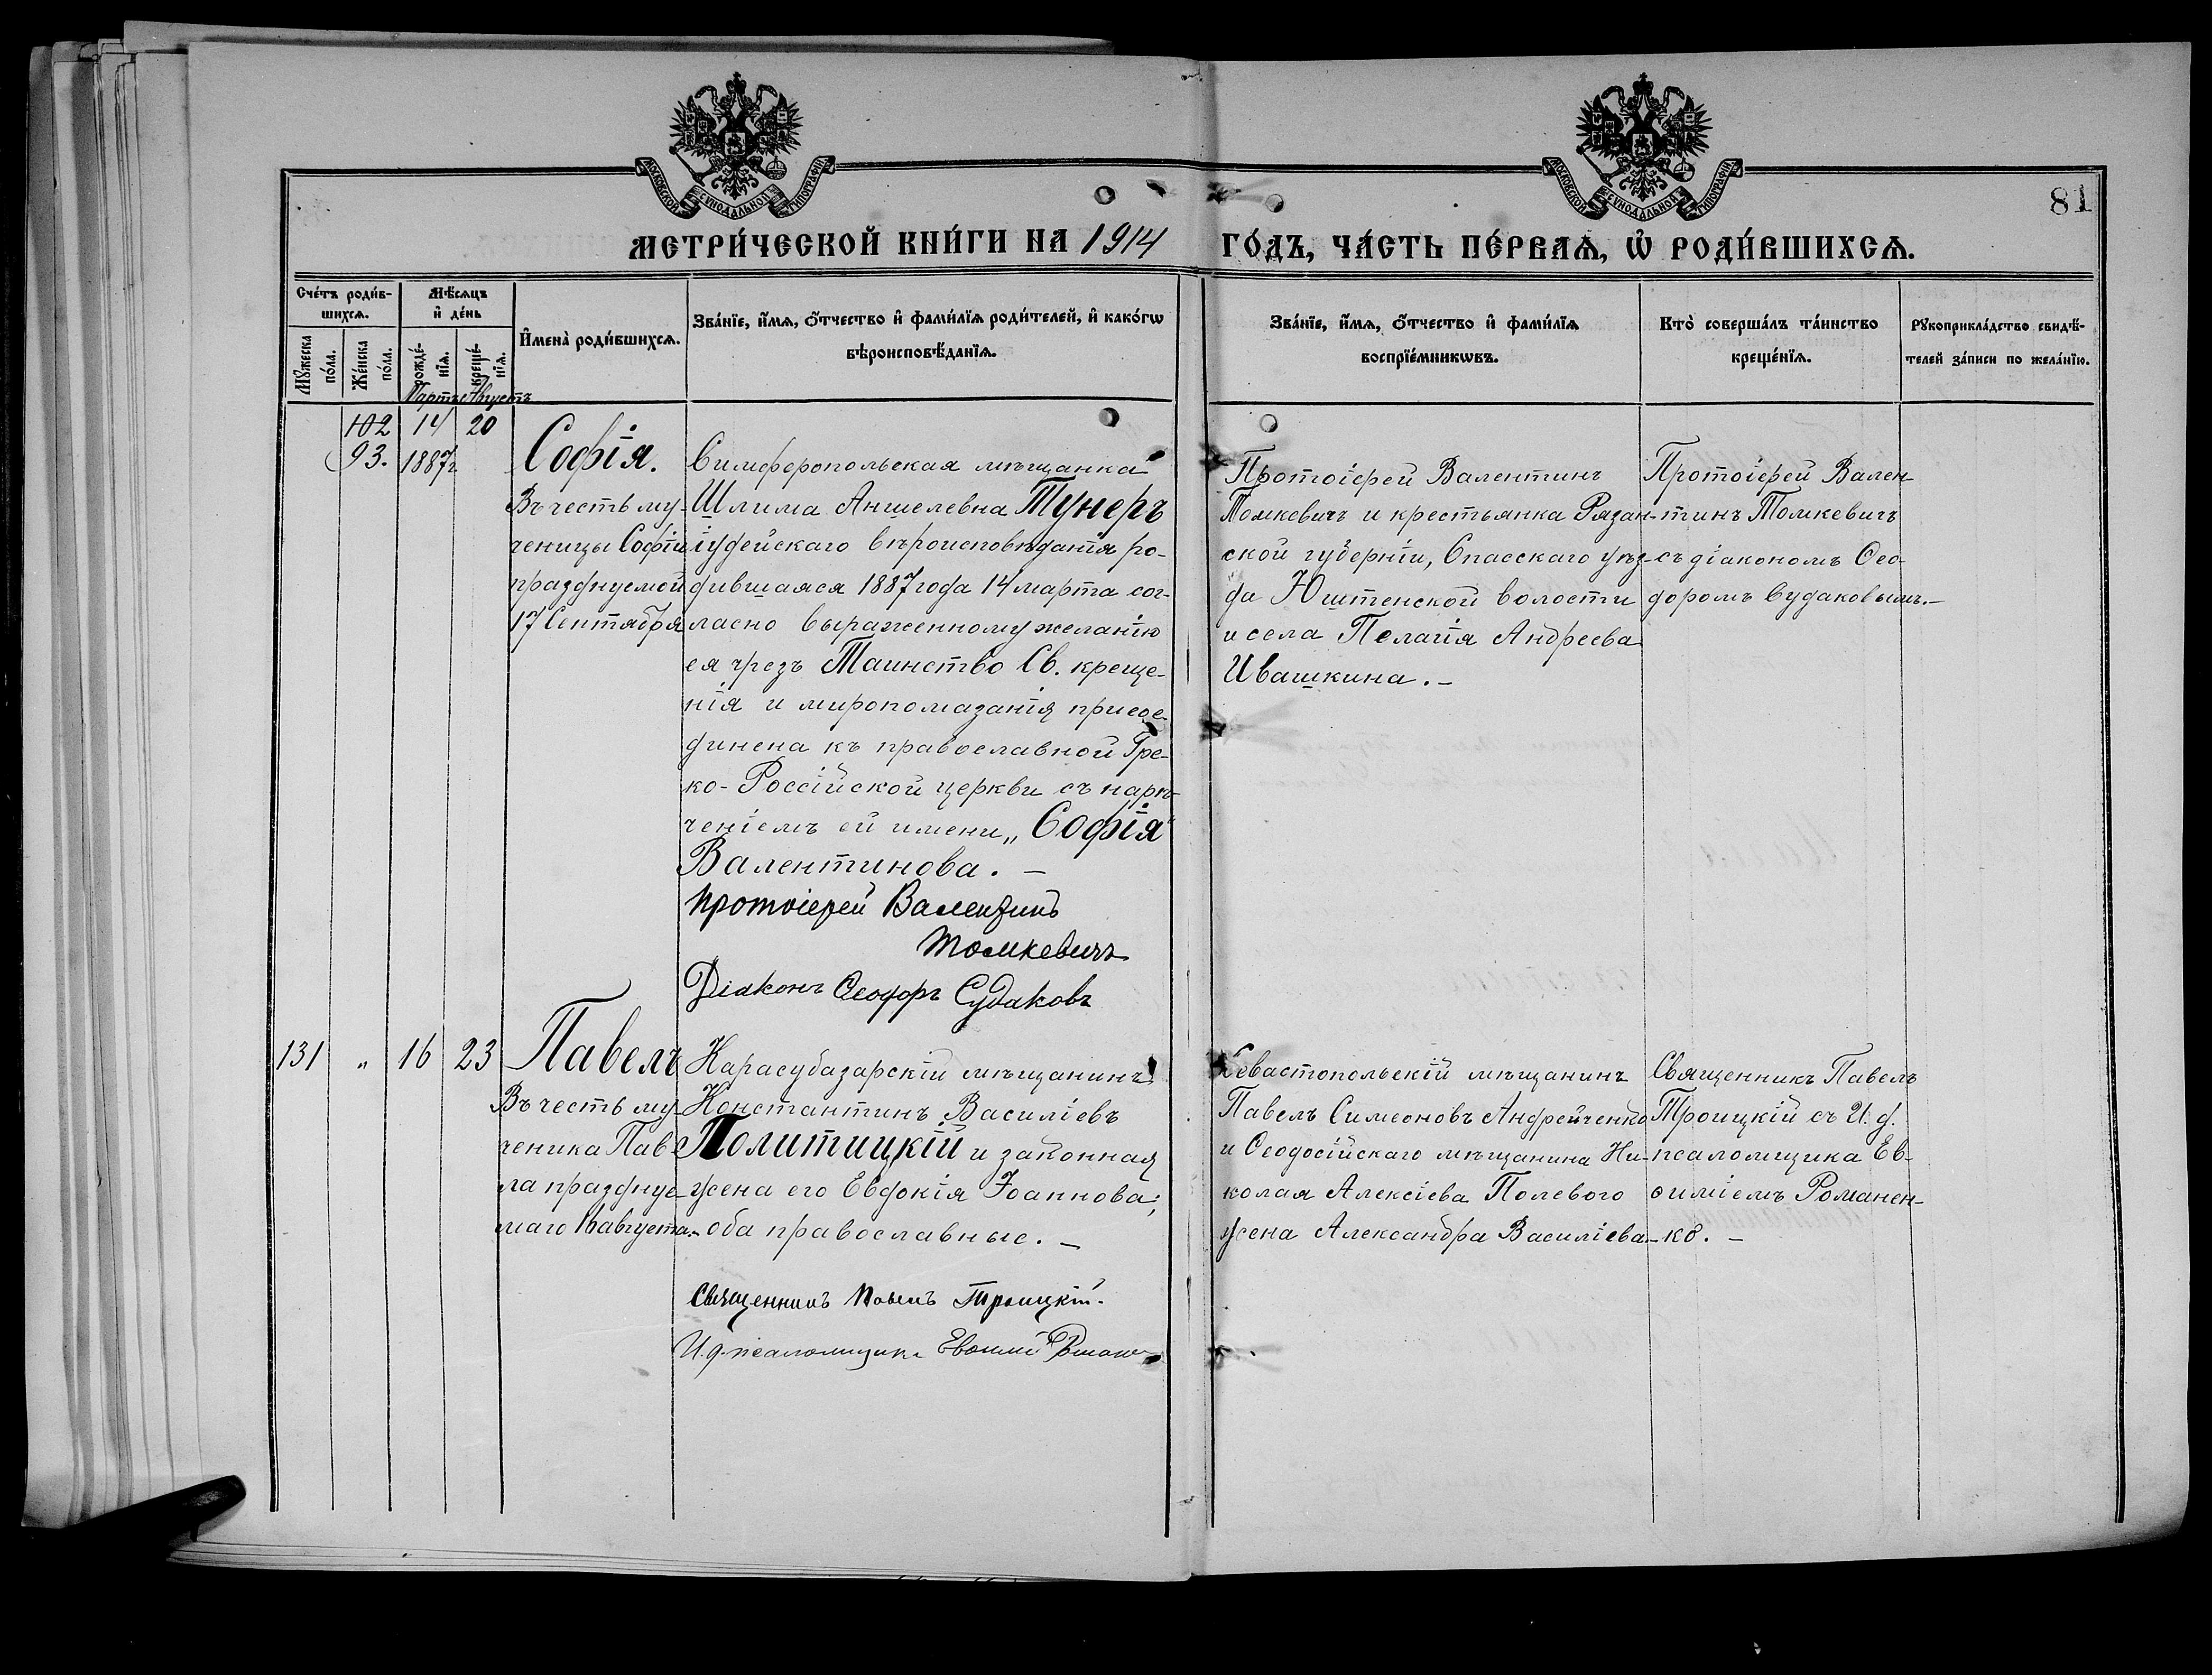 МОСКОВСКОЙ СѴНОДАЛЬНОЙ ТИПОГРАФІИ
МОСКОВСКОЙ СѴНОДАЛЬНОЙ ТИПОГРАФІИ
81
МЕТРИ́ЧЕСКОЙ КНИ́ГИ НА 1914 ГО́ДЪ, ЧА́СТЬ ПЕ́РВАѦ, Ѡ҆ РОДИ́ВШИХСѦ.
Сче́тъ роди́в-
шихсѧ.
Мꙋ́жеска по́ла.
Же́нска по́ла.
Мѣ́сѧцъ
и҆ де́нь
рожде́-
нїѧ.
креще́-
нїѧ.
И҆мена̀ роди́вшихсѧ.
Зва́нїе, и҆́мѧ, ѻ҆́тчество и҆ фами́лїѧ роди́телей, и҆ како́гѡ
вѣроисповѣ́данїѧ.
Зва́нїе, и҆́мѧ, ѻ҆́тчество и҆ фами́лїѧ
воспрїе́мникѡвъ.
Кто̀ соверша́лъ та́инство
креще́нїѧ.
Рꙋкоприкла́дство свидѣ́-
телей за́писи по жела́нїю.
Мартъ Августъ
102 14 20
93. 1887г.
Софія.
Въ честь му-
ченицы Софіи
празднуемой
17 Сентября
Симферопольская мѣщанка
Шлима Аншелевна Тунеръ
іудейскаго вѣроисповѣданія ро-
дившаяся 1887 года 14 марта сог-
ласно выраженному желанію
ея чрезъ Таинство Св. креще-
нія и миропомазанія присое-
динена къ православной Гре-
ко-Россійской церкви съ наре-
ченіемъ ей имени „София“
Валентинова. —
Протоіерей Валентинъ
Томкевичъ
Діаконъ Ѳеодоръ Судаковъ
Протоіерей Валентинъ
Томкевичъ и крестьянка Рязан-
ской губерніи, Спасскаго уѣз-
да Юштенской волости
и села Пелагія Андреева
Ивашкина. —
Протоіерей Вален-
тинъ Томкевичъ
съ діакономъ Ѳео-
доромъ Судаковымъ. —
131 „ 16 23
Павелъ
Въ честь му-
ченика Пав-
ла празднуе-
маго 16 августа.
Карасубазарскій мѣщанинъ
Константинъ Василіевъ
Политицкій и законная
жена его Евдокія Іоаннова;
оба православные. —
Священникъ Павелъ Троицкій.
И. д. псаломщика Евѳимій
Севастопольскій мѣщанинъ
Павелъ Симеоновъ Андрейченко
и Ѳеодосійскаго мѣщанина Ни-
колая Алексіева Полевого
жена Александра Василіева. —
Священникъ Павелъ
Троицкій съ И. д.
псаломщика Ев-
ѳиміемъ Романен-
ко. —